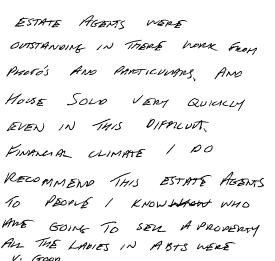 ESTATE AGENTS WERE
OUTSTANDING IN THERE WORK FROM
PHOTO'S AND PARTICULARS, AND
HOUSE SOLD VERY QUICKLY
EVEN IN THIS DIFFICULT.
FINANCIAL CLIMATE I DO
RECOMMEND THIS ESTATE AGENTS
TO PEOPLE I KNOW WHO
ARE GOING TO SELL A PROPERTY
ALL THE LADIES IN ABTS WERE
V. GOOD